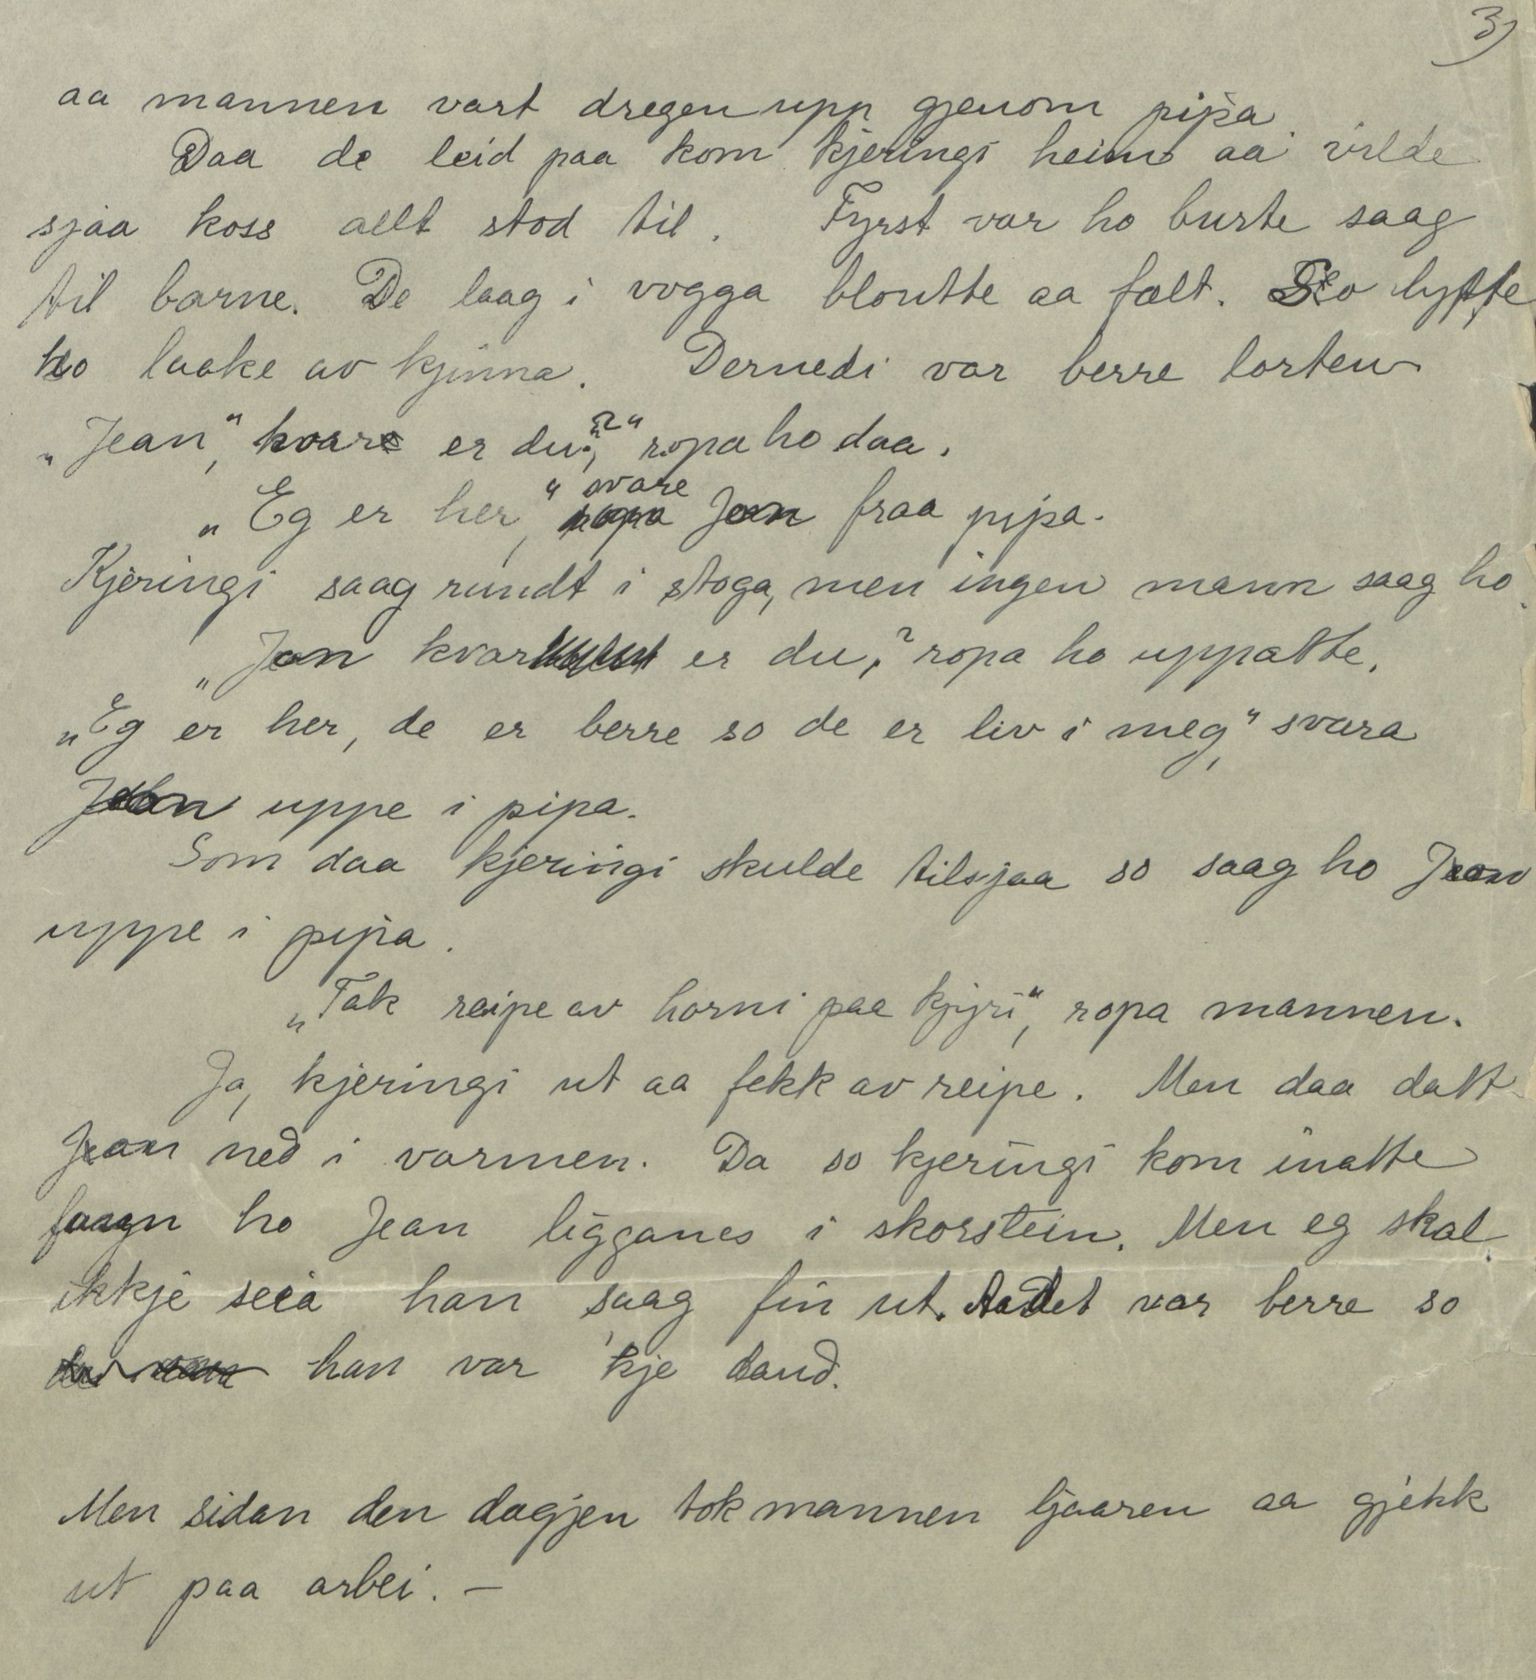 3)
aa mannen vart dregen upp gjenom pipa
Daa de leid paa kom kjeringi heim aa vilde
sjaa koss allt stod til. Fyrst var ho burte saag
til barne. De laag i vogga bloutte aa fælt. So lyfte
ho laake av kjinna. Dernedi var berre lorten
„Jean“, kvar er du?“ ropa ho daa.
„Eg er her,“ svare Jon fraa pipa.
Kjeringi saag rundt i stoga, men ingen mann saag ho.
„Jon kvar er du,? ropa ho uppatte.
„Eg er her, de er berre so de er liv i meg,“ svara
Jon uppe i pipa.
Som daa kjeringi skulde tilsjaa so saag ho Jean
uppe i pipa.
„Tak reipe av horni paa kjyri“, ropa mannen.
Ja, kjeringi ut aa fekk av reipe. Men daa datt
Jean ned i varmen. Da so kjeringi kom inatte
faagn ho Jean ligganes i skorstein. Men eg skal
ikkje seia han saag fin ut. det var berre so
han var 'kje daud.
Men sidan den dagjen tok mannen ljaaren aa gjekk
ut paa arbei. –